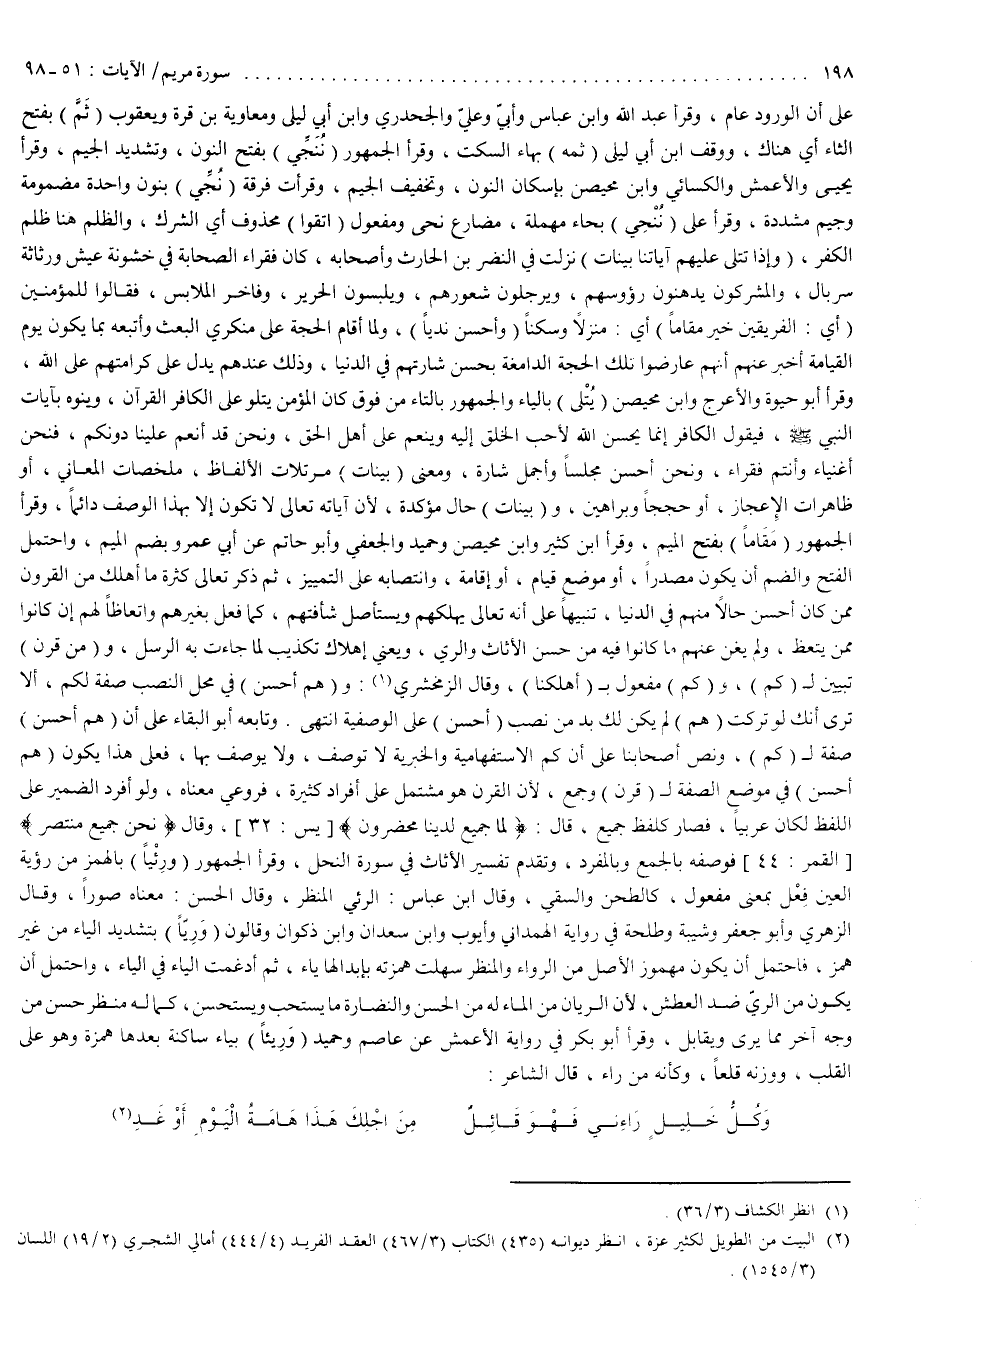 ١٩٨ ........................................................ سورة مريم/ الآيات : ٥١ - ٩٨
على أن الورود عام ، وقرأ عبد الله وابن عباس وأبيّ وعليّ والجحدري وابن أبي ليلى ومعاوية بن قرة ويعقوب ( ثَمَّ ) بفتح
الثاء أي هناك ، ووقف ابن أبي ليلى ( ثمه ) بهاء السكت ، وقرأ الجمهور ( نُنَجِّي ) بفتح النون ، وتشديد الجيم ، وقرأ
يحيى والأعمش والكسائي وابن محيصن بإسكان النون ، وتخفيف الجيم ، وقرأت فرقة ( نُجِّي ) بنون واحدة مضمومة
وجيم مشددة ، وقرأ على ( نُنْحِي ) بحاء مهملة ، مضارع نحى ومفعول ( اتقوا ) محذوف أي الشرك ، والظلم هنا ظلم
الكفر ، ( وإذا تتلى عليهم آياتنا بينات ) نزلت في النضر بن الحارث وأصحابه ، كان فقراء الصحابة في خشونة عيش ورثاثة
سربال ، والمشركون يدهنون رؤوسهم ، ويرجلون شعورهم ، ويلبسون الحرير ، وفاخر الملابس ، فقالوا للمؤمنين
( أي : الفريقين خير مقاماً ) أي : منزلاً وسكناً ( وأحسن ندياً ) ، ولما أقام الحجة على منكري البعث وأتبعه بما يكون يوم
القيامة أخبر عنهم أنهم عارضوا تلك الحجة الدامغة بحسن شارتهم في الدنيا ، وذلك عندهم يدل على كرامتهم على الله ،
وقرأ أبو حيوة والأعرج وابن محيصن ( يُتْلى ) بالياء والجمهور بالتاء من فوق كان المؤمن يتلو على الكافر القرآن ، وينوه بآيات
النبي ﷺ ، فيقول الكافر إنما يحسن الله لأحب الخلق إليه وينعم على أهل الحق ، ونحن قد أنعم علينا دونكم ، فنحن
أغنياء وأنتم فقراء ، ونحن أحسن مجلساً وأجمل شارة ، ومعنى ( بينات ) مرتلات الألفاظ ، ملخصات المعاني ، أو
ظاهرات الإعجاز ، أو حججاً وبراهين ، و ( بينات ) حال مؤكدة ، لأن آياته تعالى لا تكون إلا بهذا الوصف دائماً ، وقرأ
الجمهور ( مَقَاماً ) بفتح الميم ، وقرأ ابن كثير وابن محيصن وحميد والجعفي وأبو حاتم عن أبي عمرو بضم الميم ، واحتمل
الفتح والضم أن يكون مصدراً ، أو موضع قيام ، أو إقامة ، وانتصابه على التمييز ، ثم ذكر تعالى كثرة ما أهلك من القرون
ممن كان أحسن حالًا منهم في الدنيا ، تنبيهاً على أنه تعالى يهلكهم ويستأصل شأفتهم ، كما فعل بغيرهم واتعاظاً لهم إن كانوا
ممن يتعظ ، ولم يغن عنهم ما كانوا فيه من حسن الأثاث والري ، ويعني إهلاك تكذيب لما جاءت به الرسل ، و ( من قرن )
تبيين لـ ( كم ) ، و ( كم ) مفعول بـ ( أهلكنا ) ، وقال الزمخشري(١) : و ( هم أحسن ) في محل النصب صفة لكم ، ألا
ترى أنك لو تركت ( هم ) لم يكن لك بد من نصب ( أحسن ) على الوصفية انتهى . وتابعه أبو البقاء على أن ( هم أحسن )
صفة لـ ( كم ) ، ونص أصحابنا على أن كم الاستفهامية والخبرية لا توصف ، ولا يوصف بها ، فعلى هذا يكون ( هم
أحسن ) في موضع الصفة لـ ( قرن ) وجمع ، لأن القرن هو مشتمل على أفراد كثيرة ، فروعي معناه ، ولو أفرد الضمير على
اللفظ لكان عربياً ، فصار كلفظ جميع ، قال : ﴿ لما جميع لدينا محضرون ﴾ [ يس : ٣٢ ] ، وقال ﴿ نحن جميع منتصر ﴾
[ القمر : ٤٤ ] فوصفه بالجمع وبالمفرد ، وتقدم تفسير الأثاث في سورة النحل ، وقرأ الجمهور ( ورِئْياً ) بالهمز من رؤية
العين فِعْل بمعنى مفعول ، كالطحن والسقي ، وقال ابن عباس : الرئي المنظر ، وقال الحسن : معناه صوراً ، وقال
الزهري وأبو جعفر وشيبة وطلحة في رواية الهمداني وأيوب وابن سعدان وابن ذكوان وقالون ( وَرِيّاً ) بتشديد الياء من غير
همز ، فاحتمل أن يكون مهموز الأصل من الرواء والمنظر سهلت همزته بإبدالها ياء ، ثم أدغمت الياء في الياء ، واحتمل أن
يكون من الريّ ضد العطش ، لأن الريان من الماء له من الحسن والنضارة ما يستحب ويستحسن ، كما له منظر حسن من
وجه آخر مما يرى ويقابل ، وقرأ أبو بكر في رواية الأعمش عن عاصم وحميد ( وَرِيئاً ) بياء ساكنة بعدها همزة وهو على
القلب ، ووزنه قلعاً ، وكأنه من راء ، قال الشاعر :
وَكُلُّ خَلِيلٍ رَاءِنِي فَهْوَ قَائِلٌ مِنَ اجْلِكَ هَذَا هَامَةُ الْيَوْمِ أَوْ غَدِ(٢)
(١) انظر الكشاف (٣٦/٣) .
(٢) البيت من الطويل لكثير عزة ، انظر ديوانه (٤٣٥) الكتاب (٤٦٧/٣) العقد الفريد (٤٤٤/٤) أمالي الشجري (١٩/٢) اللسان
(١٥٤٥/٣) .